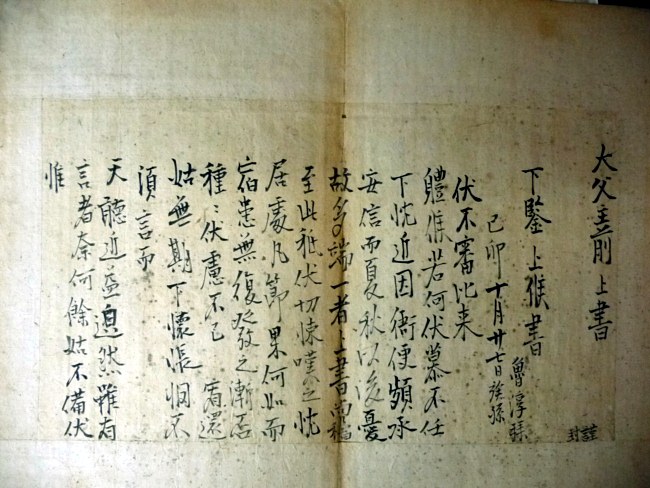 大父主前 上書
下鑒 上候書
己卯十月廿七日
魯淳
伏不審比來
體候若何伏慕不任
下忱近因衙便頻承
安信而夏秋以後憂
故多端一者上書尙稽
至此秪伏切悚嘆之忱
居處凡節果何如而
宿患無復發之漸否
種〻伏慮不已 宥還
姑無期下懷漲悃不
須言而
天聽近益邈然雖有
言者奈何餘姑不備伏
惟